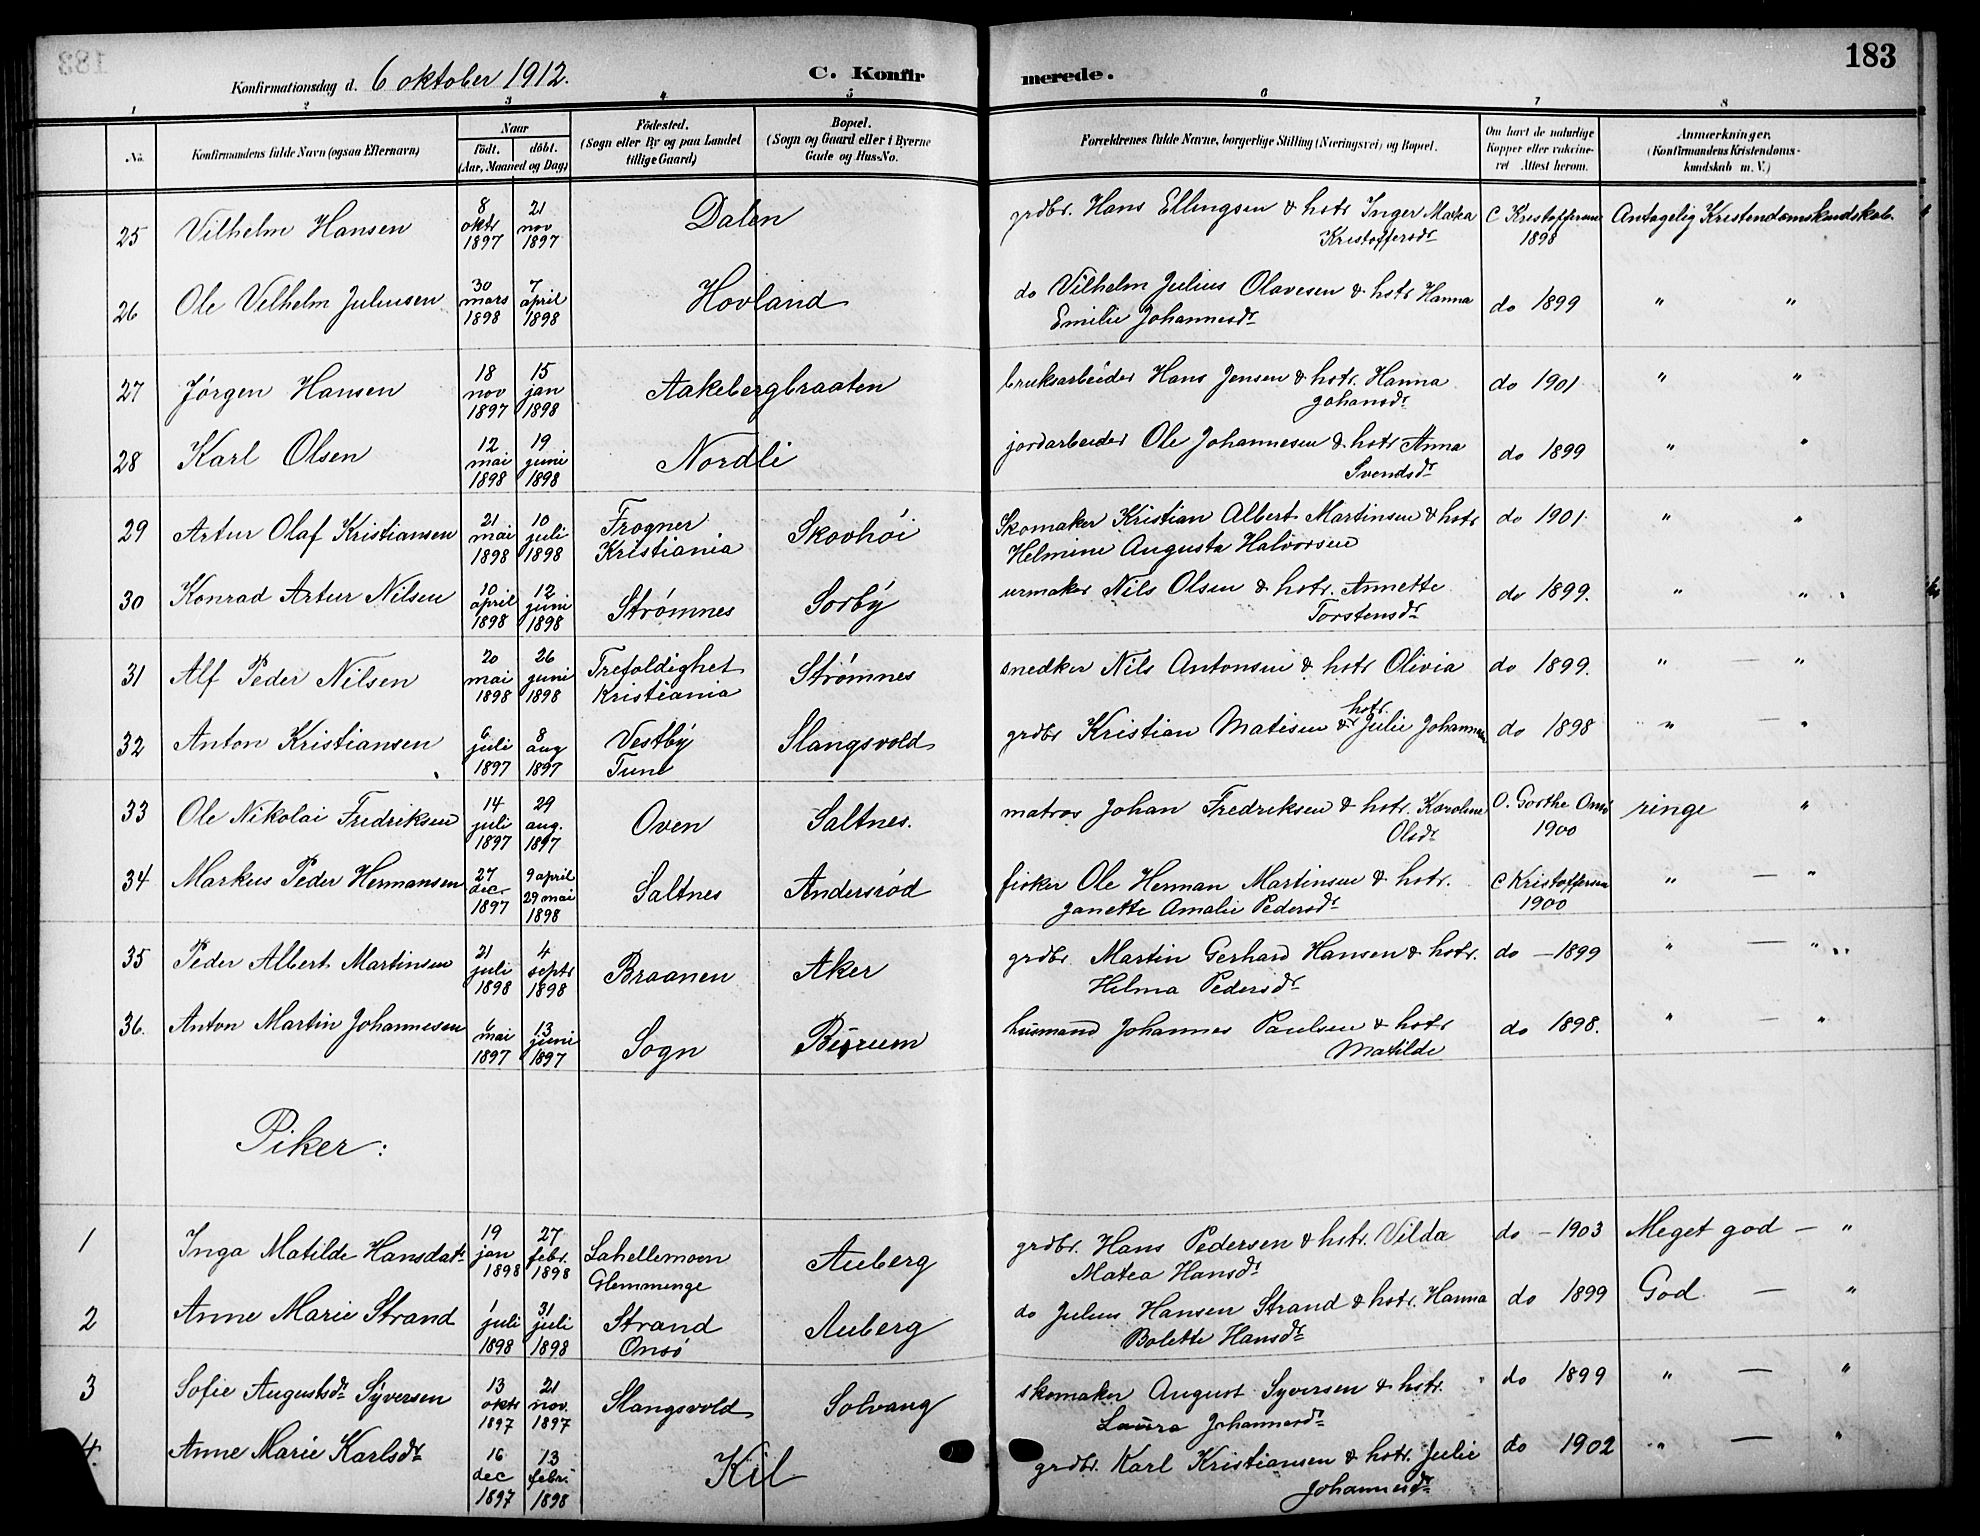 183
Konfirmationsdag d. 6 oktober 1912.
C. Konfirmerede.
1 2 3 4 5 6 7 8
No.
Konfirmandens fulde Navn (ogsaa Efternavn)
Naar
födt. döbt.
(Aar, Maaned og Dag)
Födested.
(Sogn eller By og paa Landet
tillige Gaard)
Bopæl.
(Sogn og Gaard eller i Byerne
Gade og Hus-No.
Forældrenes fulde Navne, borgerlige Stilling (Næringsvei) og Bopæl.
Om havt de naturlige
Kopper eller vakcine-
ret Attest herom.
Anmærkninger.
(Konfirmandens Kristendoms-
kundskab m. V.)
25 Vilhelm Hansen 8 oktr 1897 21 nov 1897 Dalen grdbr. Hans Ellingsen & hstr Inger Matea Kristoffersdr C Kristoffersen 1898 Antagelig Kristendomskundskab.
26 Ole Vilhelm Juliussen 30 mars 1898 7 april 1898 Hovland do Vilhelm Julius Olavesen & hstr Hanna Emilie Johannesdr do 1899 " "
27 Jörgen Hansen 18 nov 1897 15 jan 1898 Aakebergbraaten bruksarbeider Hans Jensen & hstr. Hanna Johansdr do 1901 " "
28 Karl Olsen 12 mai 1898 19 juni 1898 Nordli jordarbeider Ole Johannesen & hstr Anna Svendsdr do 1899 " "
29 Artur Olaf Kristiansen 21 mai 1898 10 juli 1898 Frogner Kristiania Skovhöi Skomaker Kristian Albert Martinsen & hstr Helmine Augusta Halvorsen do 1901 " "
30 Konrad Artur Nilsen 10 april 1898 12 juni 1898 Strømnes Sorby urmaker Nils Olsen & hstr. Annette Torstensdr do 1899. " "
31 Alf Peder Nilsen 20 mai 1898 26 juni 1898 Trefoldighet Kristiania Strømnes snedker Nils Antonsen & hstr Olivia do 1899. " — "
32 Anton Kristiansen 6 juli 1897 8 aug 1897 Vestby Tune Slangsvold grdbr Kristian Matisen & hstr. Julie do 1898 " — "
33 Ole Nikolai Fredriksen 14 juli 1897 29 aug. 1897 Oven Saltnes. matros Johan Fredriksen & hstr. Karoline Olsdr O. Gorthe 1900 ringe "
34 Markus Peder Hermansen 27 dec 1897 9 april 29 mai 1898 Saltnes Andersröd fisker Ole Herman Martinsen & hstr. Janette Amalie Pedersdr C Kristoffersen 1900 " — "
35 Peder Albert Martinsen 21 juli 1898 4 septr 1898 Braanen Aker grdbr Martin Gerhard Hansen & hstr. Helma Pedersdr do — 1899 " — "
36. Anton Martin Johannesen 6 mai 1897 13 juni 1897 Sogn husmand Johannes Paulsen & hstr Matilde do 1898. " — "
Piker:
1 Inga Matilde Hansdatr 19 jan 1898 27 febr. 1898 Lahellemoen Glemminge Auberg grdbr. Hans Pedersen & hstr. Vilda Matea Hansdr do — 1903 Meget god — "
2 Anne Marie Strand 1 juli 1898 31 juli 1898 Strand Onsö Auberg do Julius Hansen Strand & hstr. Hanna Bolette Hansdr do 1899 God — "
3 Sofie Augustsdr Syversen 13 oktr 1897 21 nov. 1897 Slangsvold Solvang skomaker August Syversen & hstr. Laura Johannesdr do 1899 " — "
4. Anne Marie Karlsdr 16 dec 1897 13 febr. 1898 Kil grdbr. Karl Kristiansen & hstr. Julie Johannesdr do 1902 " — "